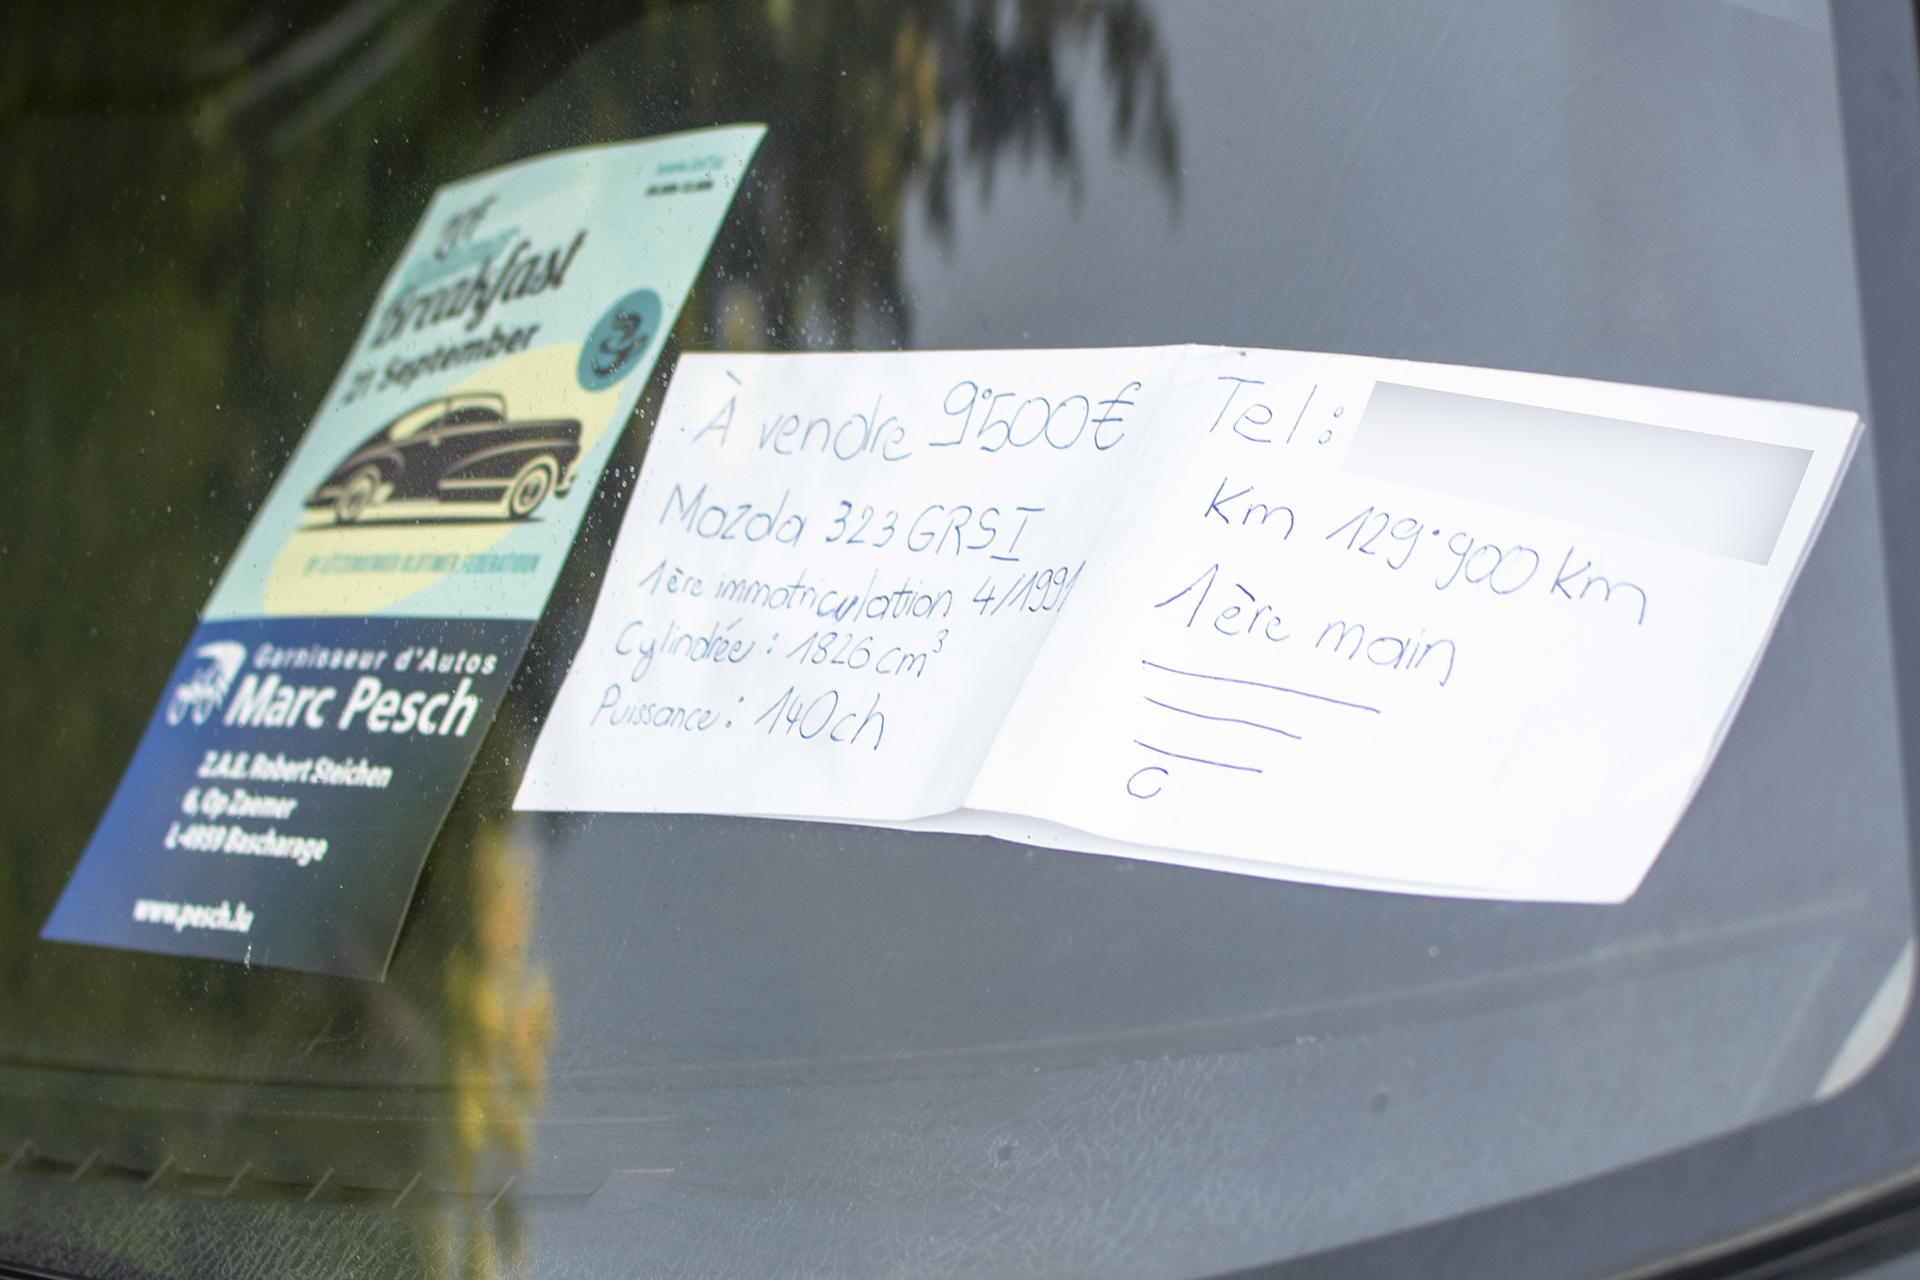 Breakfast
21 September
BY LËTZEBUERGER OLDTIMER FEDERATIOUN
Garnisseur d'Autos
Marc Pesch
Z.A.E. Robert Steichen
6, Op Zaemer
L-4959 Bascharage
www.pesch.lu
À vendre 9'500€
Mazda 323 GRSI
1ère immatriculation 4/1991
Cylindrée : 1826 cm³
Puissance : 140ch
Tel :
Km 129·900 Km
1ère main
C